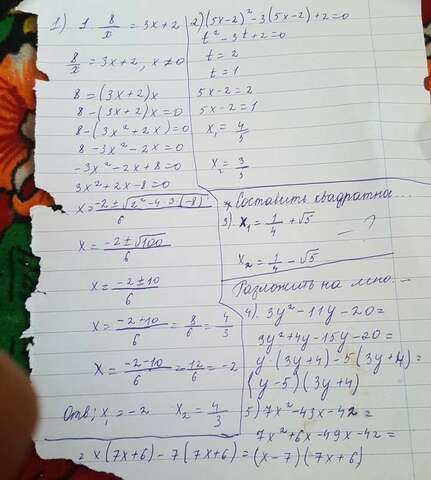 1) 1. 8/x = 3x+2
8/x = 3x+2, x≠0
8 = (3x+2)x
8-(3x+2)x=0
8-(3x²+2x)=0
8-3x²-2x=0
-3x²-2x+8=0
3x²+2x-8=0
x=-2±√(2²-4·3·(-8))/6
x=-2±√100/6
x=-2±10/6
x=-2+10/6=8/6=4/3
x=-2-10/6=12/6=-2
Отв: x₁=-2 x₂=4/3
2) (5x-2)²-3(5x-2)+2=0
t²-3t+2=0
t=2
t=1
5x-2=2
5x-2=1
x₁=4/5
x₂=3/5
* Составить квадратна...
3) x₁=1/4+√5
-?
x₂=1/4-√5
Разложить на мно...
4) 3y²-11y-20=
3y²+4y-15y-20=
y(3y+4)-5(3y+4)=
(y-5)(3y+4)
5) 7x²-43x-42=
7x²+6x-49x-42=
=x(7x+6)-7(7x+6)=(x-7)(7x+6)